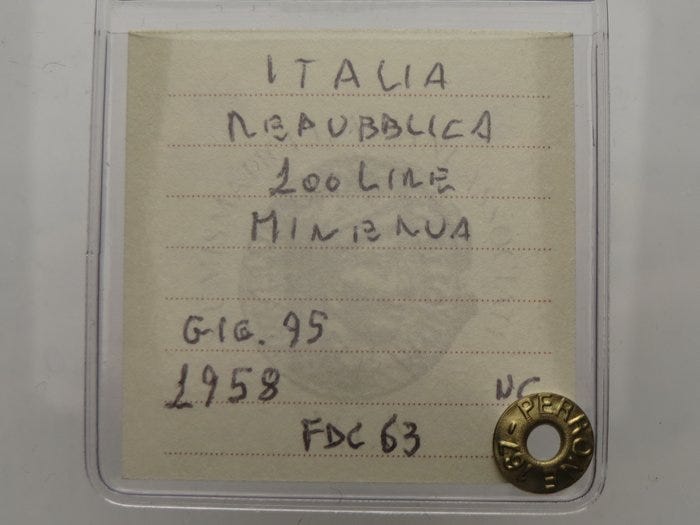 ITALIA
REPUBBLICA
100 LIRE
MINERVA
GIG. 95
1958
NC
FDC 63
PERRONE - 167